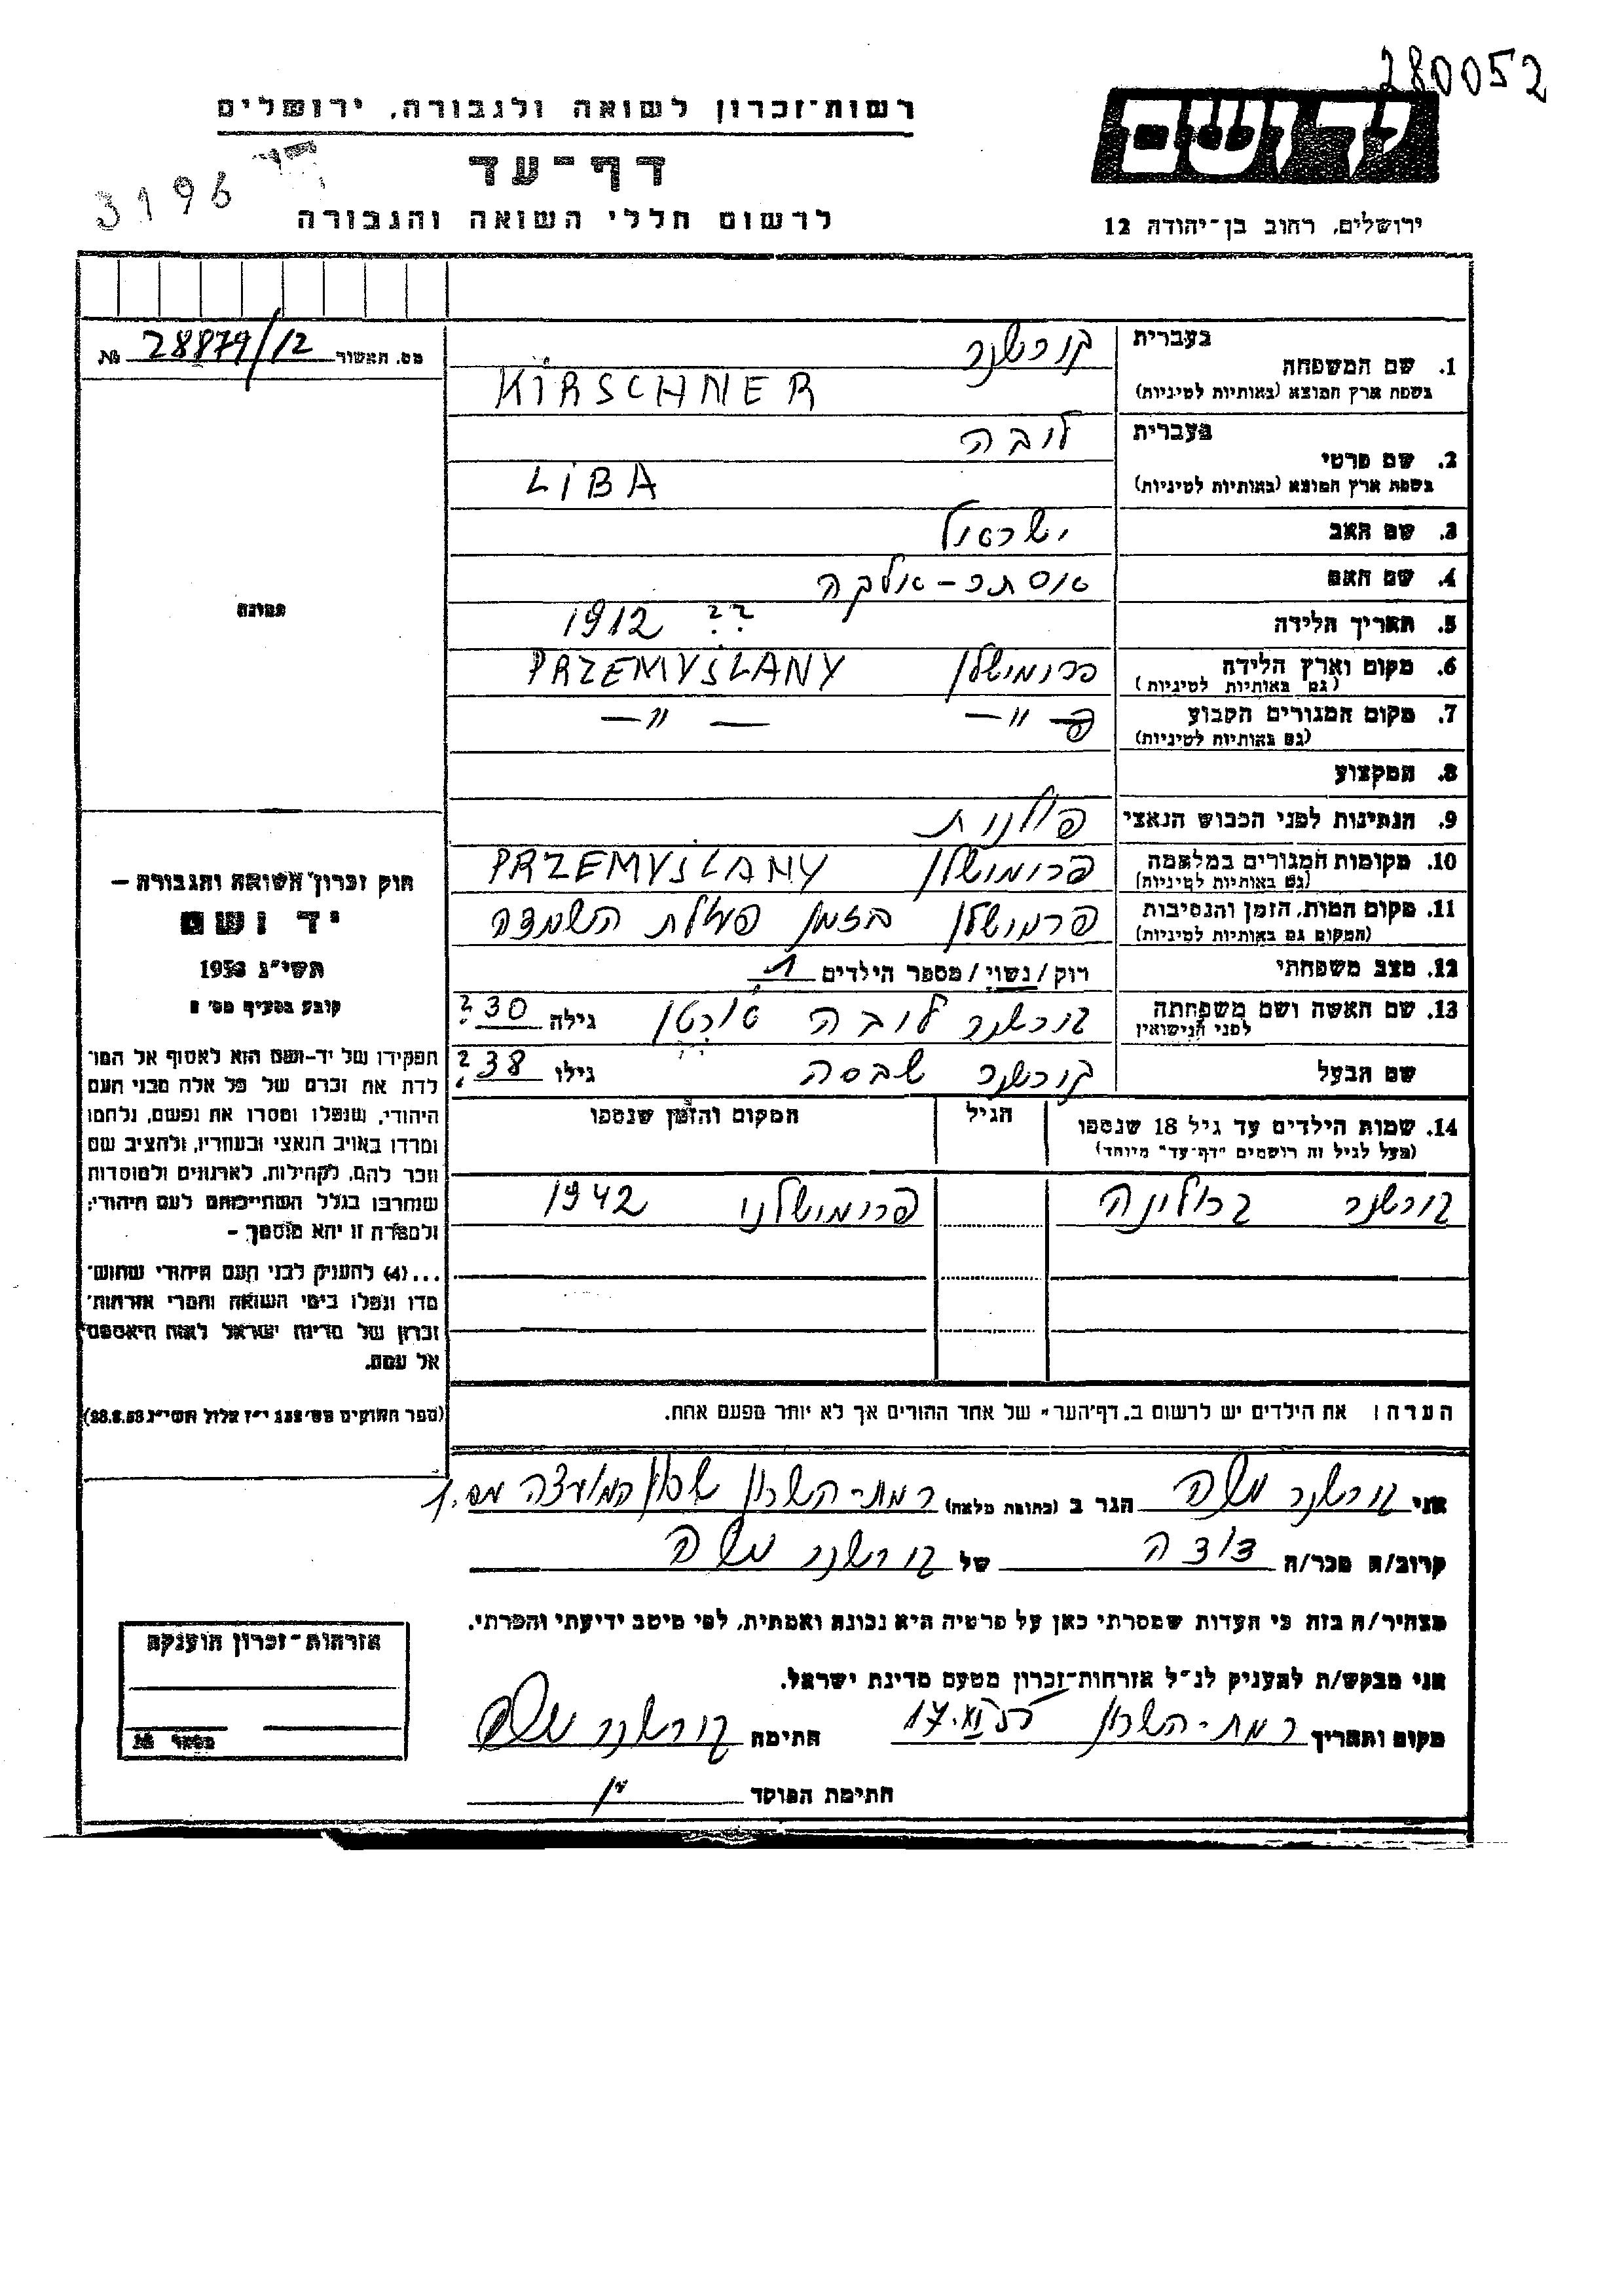 280052
רשות־זכרון לשואה ולגבורה, ירושלים
יד ושם
דף־עד
3196
לרשום חללי השואה והגבורה
ירושלים, רחוב בן־יהודה 12
מס. האשור 28879/12 №
בעברית קירשנר
1. שם המשפחה
בשפת ארץ המוצא (באותיות לטיניות) KIRSCHNER
בעברית ליבה
2. שם פרטי
בשפת ארץ המוצא (באותיות לטיניות) LIBA
3. שם האב ישראל
4. שם האם אסתר-אלקה
5. תאריך הלידה ?? 1912
6. מקום וארץ הלידה פרומישלן PRZEMYŚLANY
(גם באותיות לטיניות)
7. מקום המגורים הקבוע — " — — " —
(גם באותיות לטיניות)
8. המקצוע
9. הנתינות לפני הכבוש הנאצי פולנית
10. מקומות המגורים במלחמה פרומישלן PRZEMYŚLANY
(גם באותיות לטיניות)
11. מקום המות, הזמן והנסיבות פרמישלן בזמן פעולת השמדה
(המקום גם באותיות לטיניות)
12. מצב משפחתי רוק/נשוי/מספר הילדים 1
13. שם האשה ושם משפחתה קירשנר ליבה גילה 30 ?
לפני הנישואין
שם הבעל קירשנר שבסה גילו 38 ?
14. שמות הילדים עד גיל 18 שנספו הגיל המקום והזמן שנספו
(מעל לגיל זה רושמים "דף־עד" מיוחד)
קירשנר ברוניה פרומישלני 1942
הערה: את הילדים יש לרשום ב"דף־העד" של אחד ההורים אך לא יותר מפעם אחת.
אני קירשנר משה הגר ב (כתובת מלאה) רמת-השרון שכון המועצה מס. 1
קרוב/ה מכר/ה דודה של קירשנר משה
מצהיר/ה בזה כי העדות שמסרתי כאן על פרטיה היא נכונה ואמתית, לפי מיטב ידיעתי והכרתי.
אני מבקש/ת להעניק לנ"ל אזרחות־זכרון מטעם מדינת ישראל.
מקום ותאריך רמת-השרון 17.XI.55 חתימה קירשנר משה
חתימת הפוקד
תמונה
חוק זכרון השואה והגבורה –
יד ושם
תשי"ג 1953
קובע בסעיף מס' 2
תפקידו של יד-ושם הוא לאסוף אל המו־
לדת את זכרם של כל אלה מבני העם
היהודי, שנפלו ומסרו את נפשם, נלחמו
ומרדו באויב הנאצי ובעוזריו, ולהציב שם
וזכר להם, לקהילות, לארגונים ולמוסדות
שנחרבו בגלל השתייכותם לעם היהודי;
ולמטרה זו יהא מוסמך –
...(4) להעניק לבני העם היהודי שהוש־
מדו ונפלו בימי השואה והמרי אזרחות־
זכרון של מדינת ישראל לאות היאספם
אל עמם.
(ספר החוקים מס' 132 י"ז אלול תשי"ג 28.8.53)
אזרחות־זכרון הוענקה
מספר №